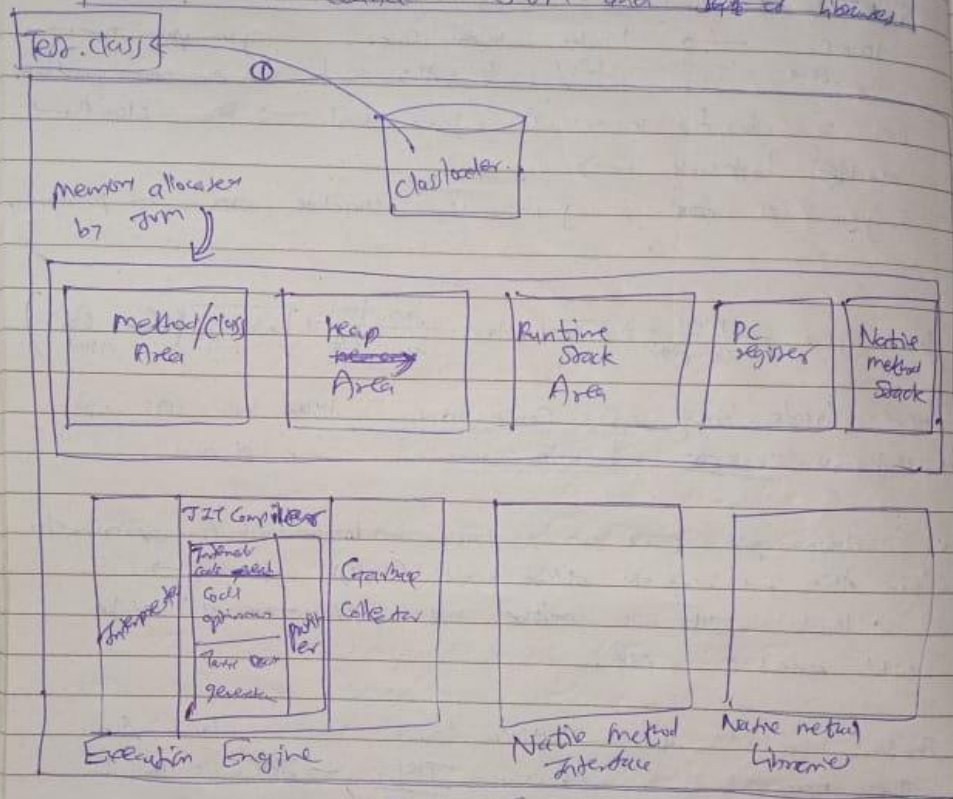 JVM and set of libraries.
Test.class
①
Classloader.
Memory allocated
by JVM
Method/Class
Area
heap
Area
Runtime
Stack
Area
PC
register
Native
method
Stack
Interpreter
JIT Compiler
Intermediate
code
Code
optimizer
Target Code
generator
Profiler
Garbage
Collector
Execution Engine
Native method
Interface
Native method
Libraries